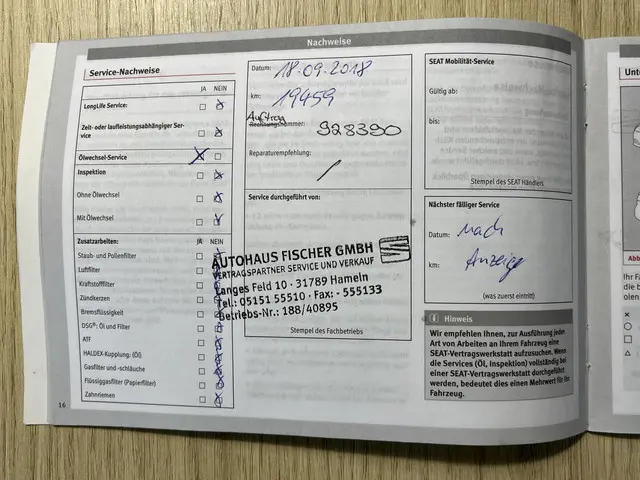 Nachweise
Service-Nachweise
JA NEIN
LongLife Service:
Zeit- oder laufleistungsabhängiger Ser-
vice
Ölwechsel-Service
Inspektion
Ohne Ölwechsel
Mit Ölwechsel
Zusatzarbeiten: JA NEIN
Staub- und Pollenfilter
Luftfilter
Kraftstofffilter
Zündkerzen
Bremsflüssigkeit
DSG®: Öl und Filter
ATF
HALDEX-Kupplung: (Öl)
Gasfilter und -schläuche
Flüssiggasfilter (Papierfilter)
Zahnriemen
16
Datum: 18.09.2018
km: 19459
Auftrag
Rechnungsnummer: 928390
Reparaturempfehlung: /
Service durchgeführt von:
AUTOHAUS FISCHER GMBH
VERTRAGSPARTNER SERVICE UND VERKAUF
Langes Feld 10 · 31789 Hameln
Tel.: 05151 55510 · Fax: - 555133
Betriebs-Nr.: 188/40895
Stempel des Fachbetriebs
SEAT Mobilität-Service
Gültig ab:
bis:
Stempel des SEAT Händlers
Nächster fälliger Service
Datum: nach
km: Anzeige
(was zuerst eintritt)
Hinweis
Wir empfehlen Ihnen, zur Ausführung jeder
Art von Arbeiten an Ihrem Fahrzeug eine
SEAT-Vertragswerkstatt aufzusuchen. Wenn
die Services (Öl, Inspektion) vollständig bei
einer SEAT-Vertragswerkstatt durchgeführt
werden, bedeutet dies einen Mehrwert für Ihr
Fahrzeug.